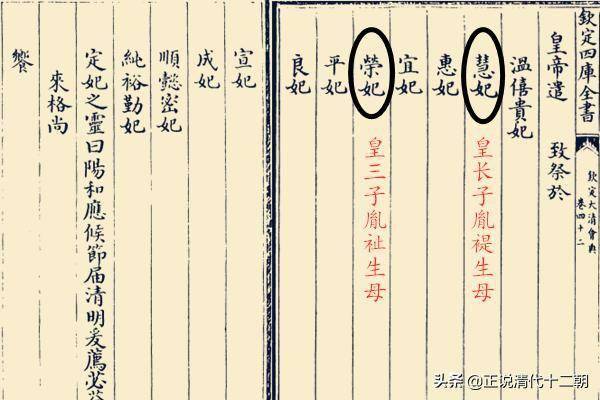 欽定四庫全書
欽定大清會典
卷四十二
皇帝遣 致祭於
溫僖貴妃
慧妃
皇长子胤禔生母
惠妃
宜妃
榮妃
皇三子胤祉生母
平妃
良妃
宣妃
成妃
順懿密妃
純裕勤妃
定妃之靈曰陽和應候節届清明爰薦苾
來格尚
饗
头条 @正说清代十二朝